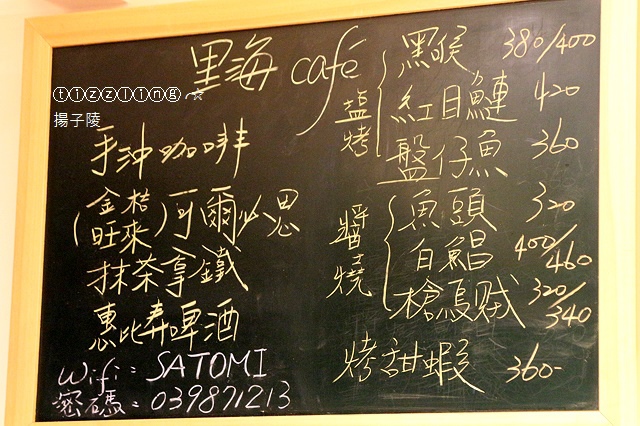 里海 café
ⓣⓘⓩⓩⓛⓘⓝⓖ
揚子陵
手沖咖啡
(金桔 旺來)可爾必思
抹茶拿鐵
惠比寿啤酒
Wifi: SATOMI
密碼: 039871213
塩烤
黑喉 380/400
紅目鰱 420
盤仔魚 360
醬燒
魚頭 320
白鯧 400/460
槍烏賊 320/340
烤甜蝦 360-